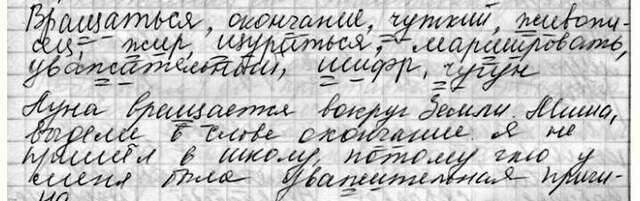 Вращаться, окончание, чуткий, живопи-
сец, жир, щуриться, маршировать,
уважительный, шифр, чугун
Луна вращается вокруг Земли. Миша,
выдели в слове окончание. Я не
пришёл в школу, потому что у
меня была уважительная причи-
на